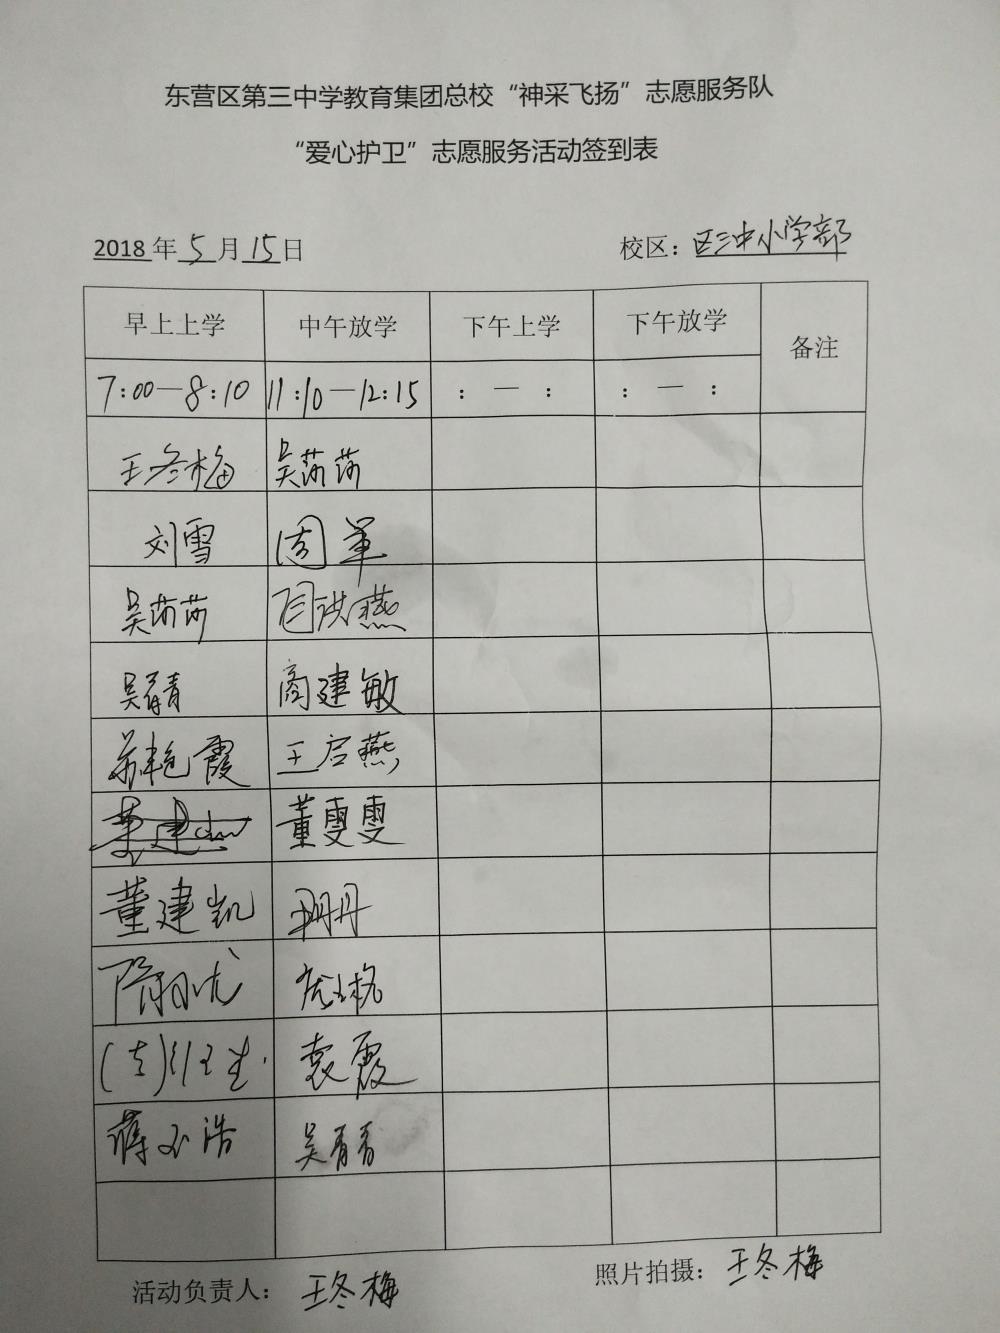 东营区第三中学教育集团总校“神采飞扬”志愿服务队
“爱心护卫”志愿服务活动签到表
2018年5月15日 校区：区三中小学部
早上上学 中午放学 下午上学 下午放学 备注
7:00—8:10 11:10—12:15 : — : : — :
王冬梅 吴莎莎
刘雪 周军
吴莎莎 闫洪燕
吴青青 商建敏
苏艳霞 王启燕
董雯雯
董建凯
袁霞
蒋玉浩 吴青青
活动负责人：王冬梅 照片拍摄：王冬梅